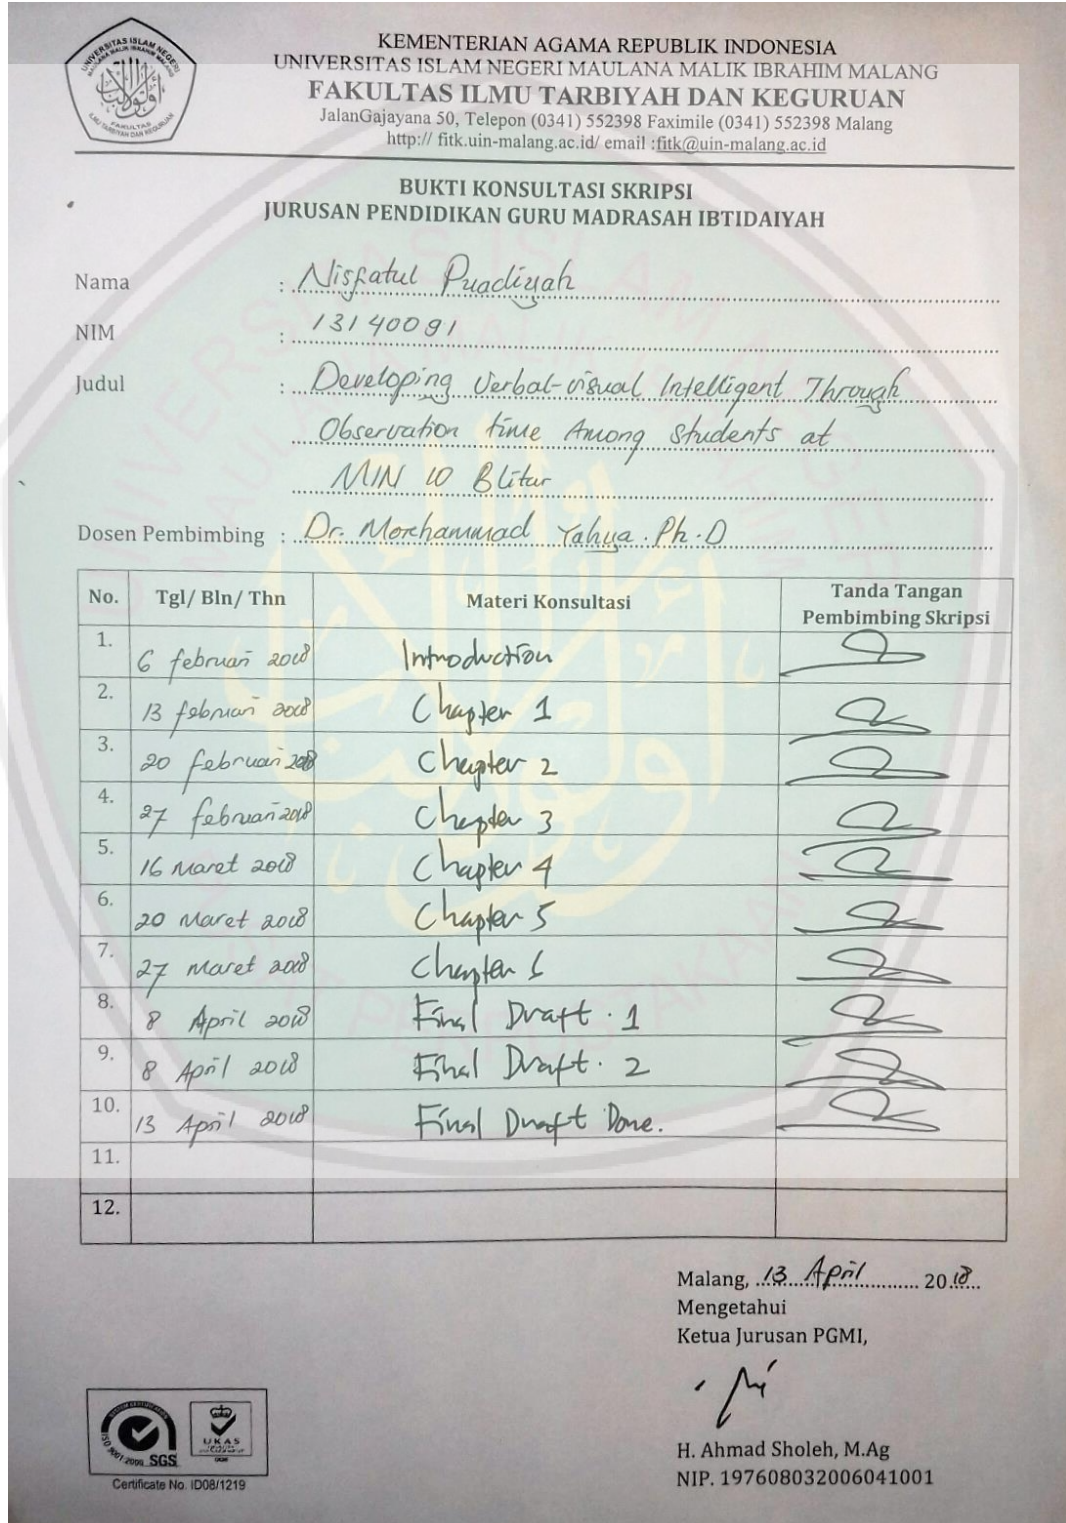 KEMENTERIAN AGAMA REPUBLIK INDONESIA
UNIVERSITAS ISLAM NEGERI MAULANA MALIK IBRAHIM MALANG
FAKULTAS ILMU TARBIYAH DAN KEGURUAN
JalanGajayana 50, Telepon (0341) 552398 Faximile (0341) 552398 Malang
http:// fitk.uin-malang.ac.id/ email :fitk@uin-malang.ac.id
BUKTI KONSULTASI SKRIPSI
JURUSAN PENDIDIKAN GURU MADRASAH IBTIDAIYAH
Nama : Nisfatul Puadiyah
NIM : 13140091
Judul : Developing Verbal-visual Intelligent Through
Observation time Among students at
MIN 10 Blitar
Dosen Pembimbing : Dr. Mochammad Yahya. Ph.D
No. Tgl/ Bln/ Thn Materi Konsultasi Tanda Tangan Pembimbing Skripsi
1. 6 februari 2018 Introduction
2. 13 februari 2018 Chapter 1
3. 20 februari 2018 Chapter 2
4. 27 februari 2018 Chapter 3
5. 16 Maret 2018 Chapter 4
6. 20 Maret 2018 Chapter 5
7. 27 Maret 2018 Chapter 6
8. 8 April 2018 Final Draft . 1
9. 8 April 2018 Final Draft . 2
10. 13 April 2018 Final Draft Done.
11.
12.
Malang, 13 April 2018
Mengetahui
Ketua Jurusan PGMI,
H. Ahmad Sholeh, M.Ag
NIP. 197608032006041001
ISO 9001:2000 SGS
UKAS
Certificate No. ID08/1219